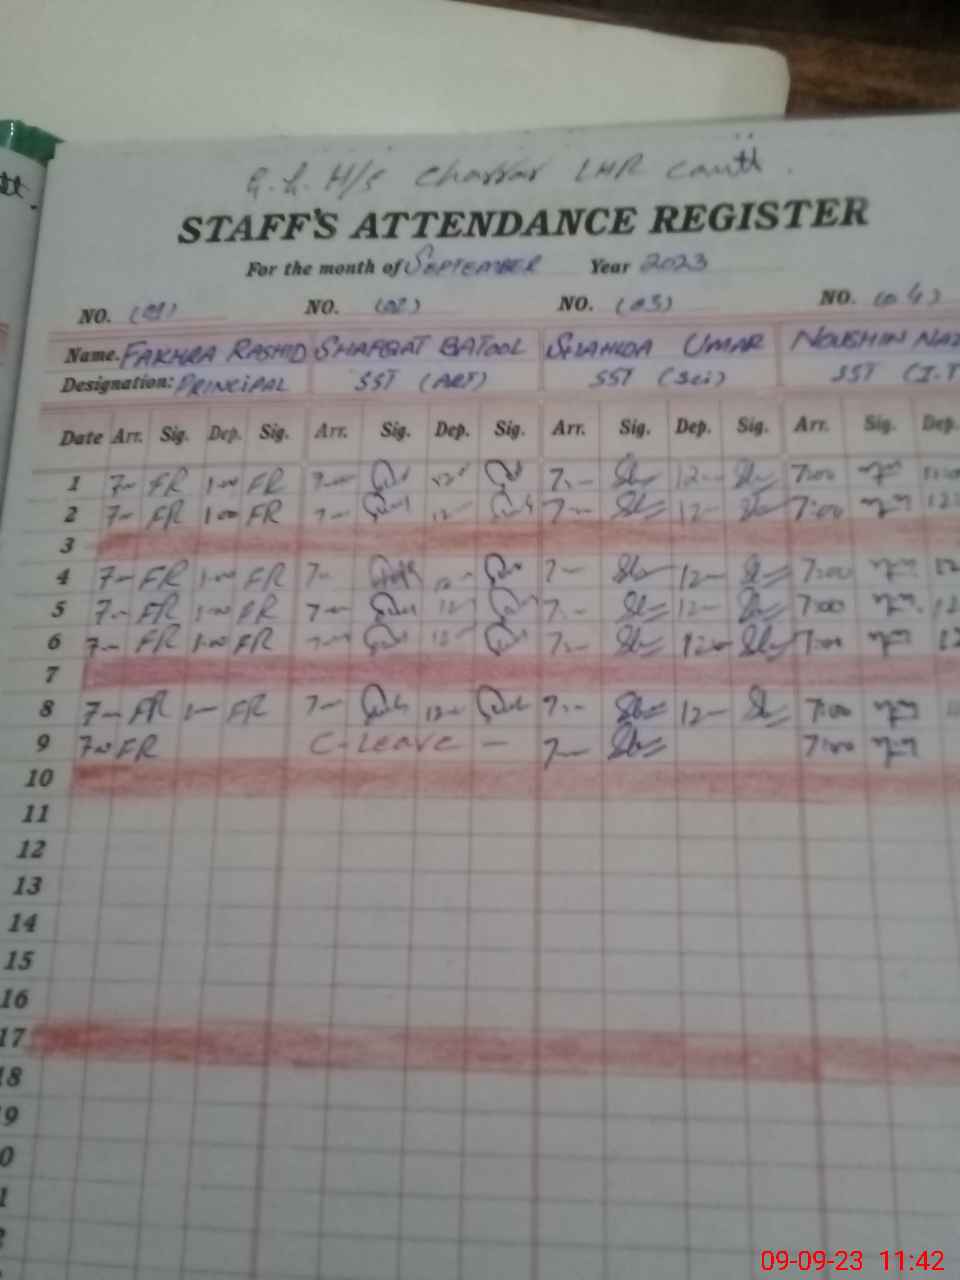 G. G. H/S Charrar LHR Cantt.
STAFF'S ATTENDANCE REGISTER
For the month of SEPTEMBER Year 2023
NO. (01) NO. (02) NO. (03) NO. (04)
Name. FAKHRA RASHID SHAFQAT BATOOL SHAHIDA UMAR NOUSHIN NAZ
Designation: PRINCIPAL SST (ART) SST (Sci) SST (I.T
Date Arr. Sig. Dep. Sig. Arr. Sig. Dep. Sig. Arr. Sig. Dep. Sig. Arr. Sig. Dep.
1 7- FR 1-00 FR 7-00 12- 7:- 12- 7:00
2 7- FR 1-00 FR 7- 12- 7- 12- 7:00 12
3
4 7- FR 1-00 FR 7- 12- 7- 12- 7:00 12
5 7- FR 1-00 FR 7- 12- 7:- 12- 7:00 12
6 7- FR 1-00 FR 7- 12- 7:- 12- 7:00 12
7
8 7- FR 1- FR 7- 12- 7:- 12- 7:00
9 7-00 FR C-Leave - 7- 7:00
10
11
12
13
14
15
16
17
18
9
0
1
2
09-09-23 11:42